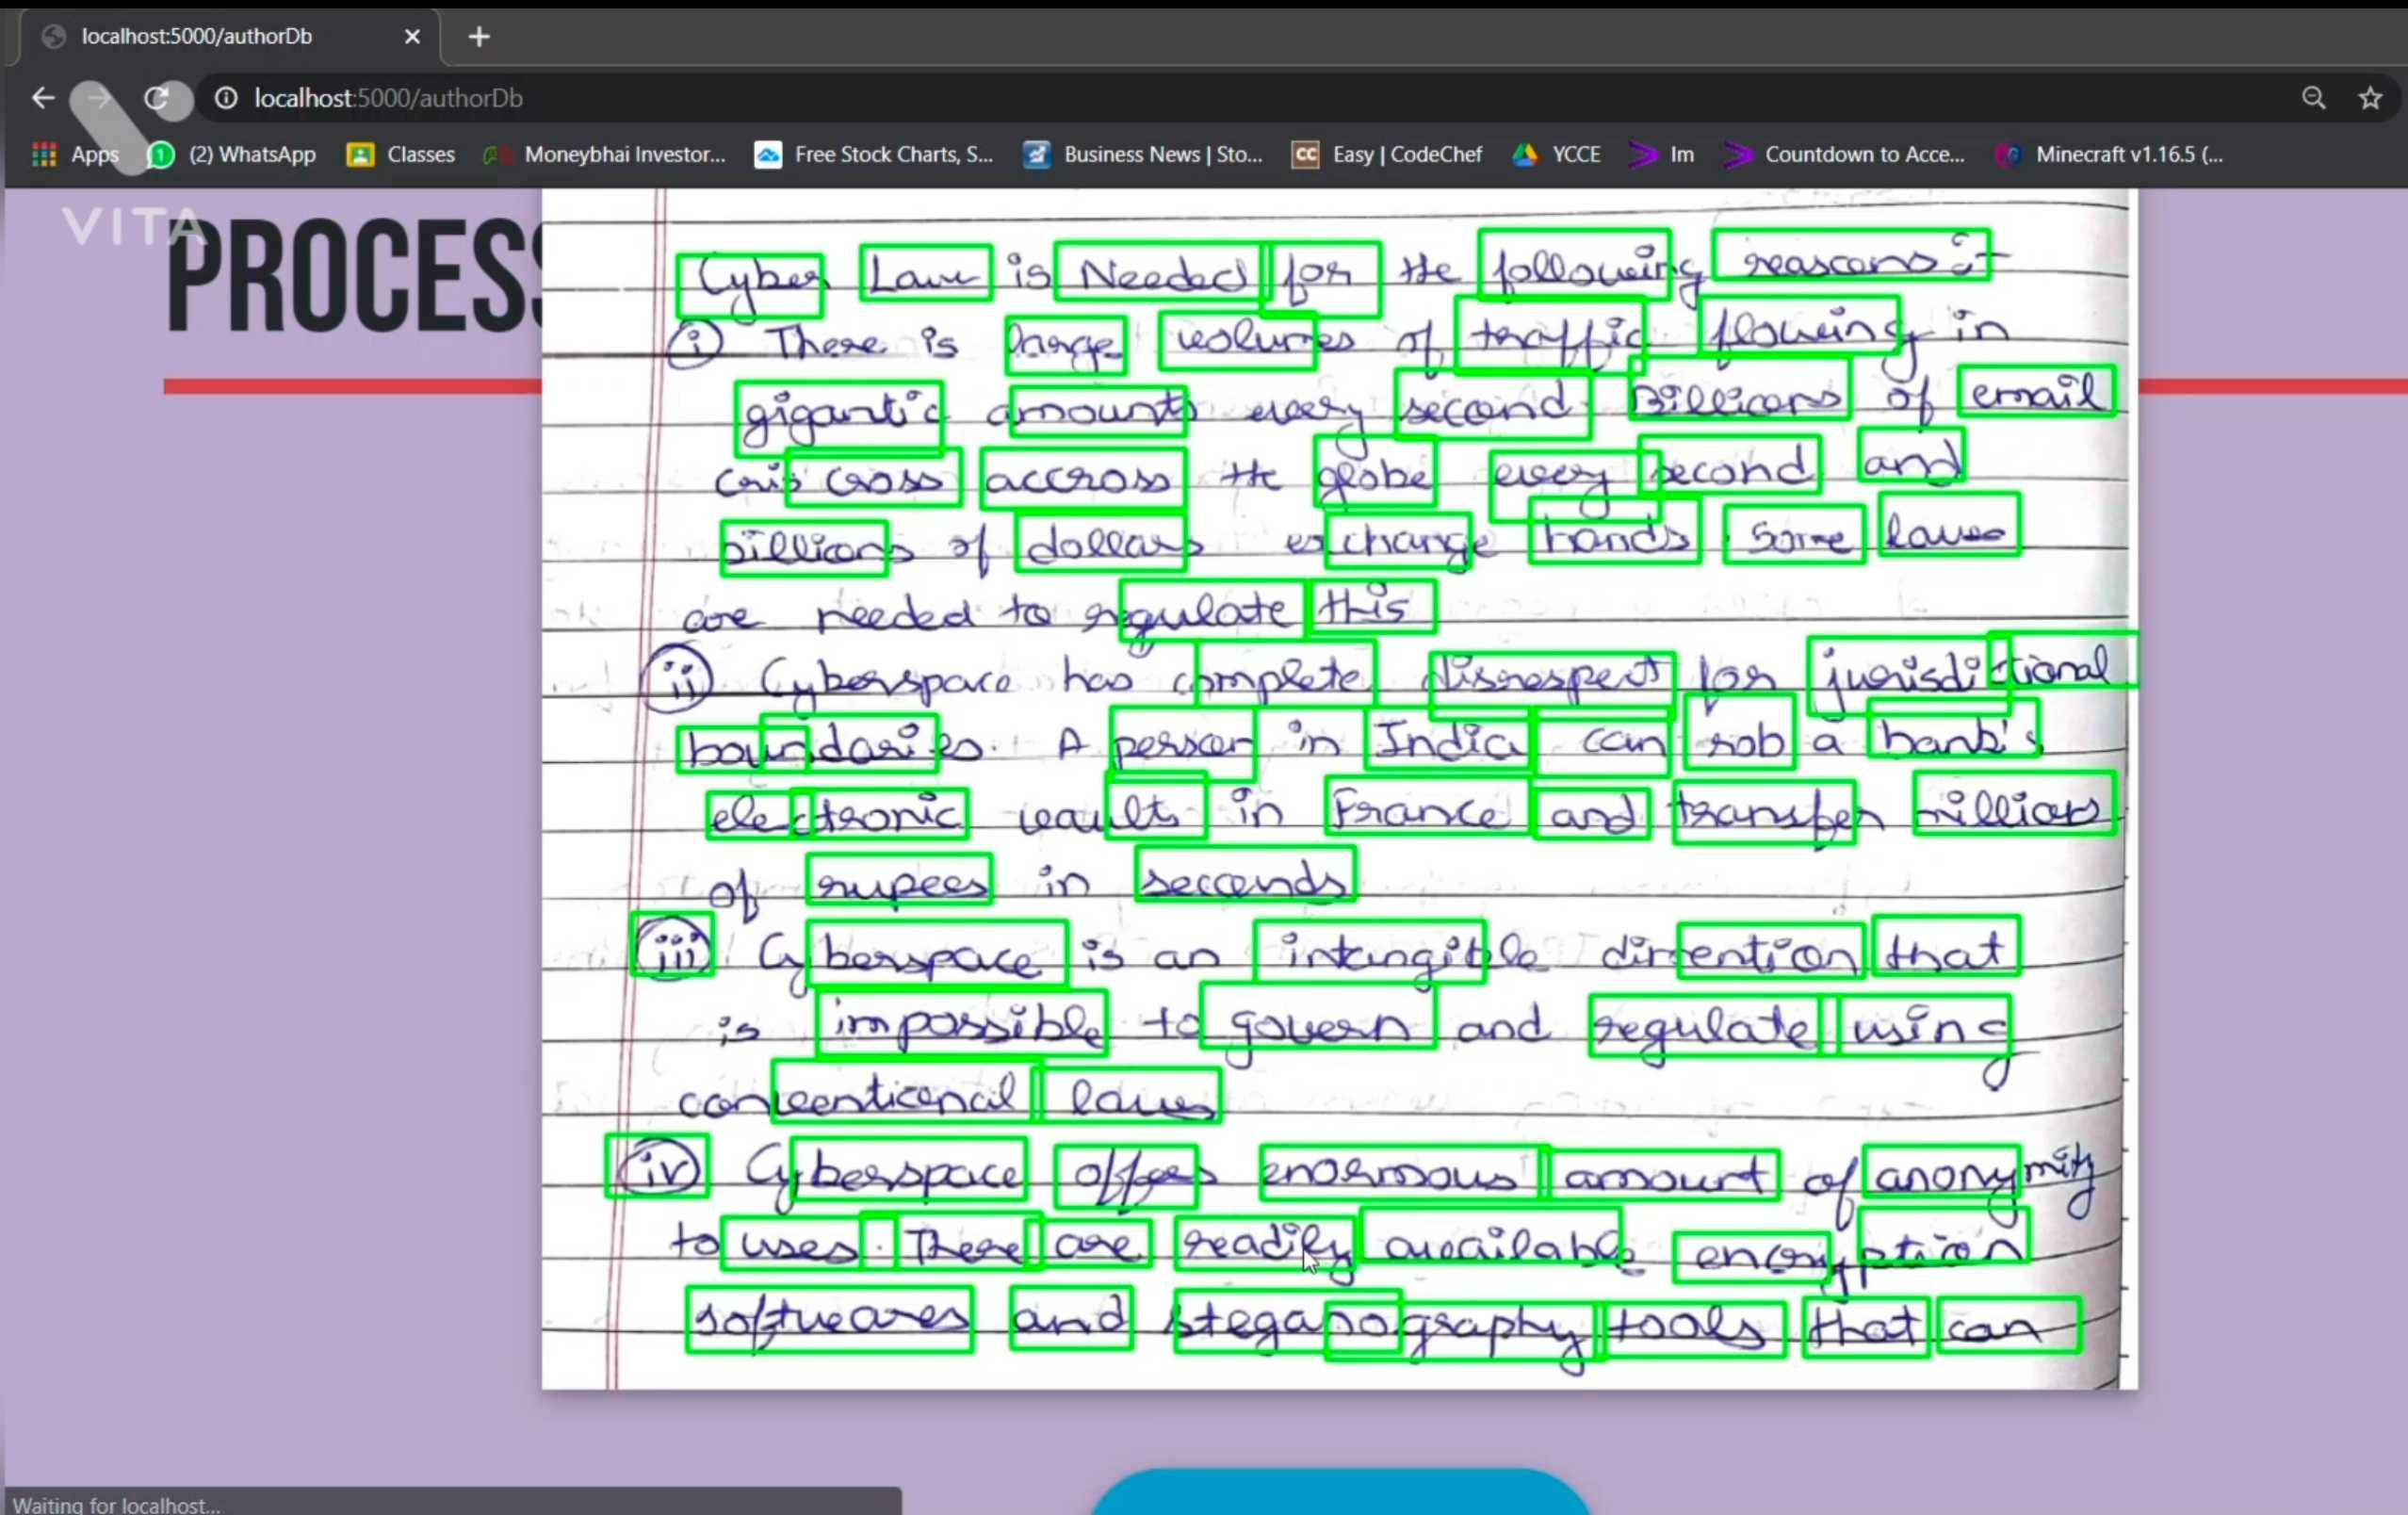 localhost:5000/authorDb
localhost:5000/authorDb
Apps (2) WhatsApp Classes Moneybhai Investor... Free Stock Charts, S... Business News | Sto... CC Easy | CodeChef YCCE Im Countdown to Acce... Minecraft v1.16.5 (...
VITA
PROCESS
Cyber Law is Needed for the following reasons :-
(i) There is large volumes of traffic flowing in
gigantic amounts every second Billions of email
cris cross accross the globe every second and
billions of dollars exchange hands. Some laws
are needed to regulate this
(ii) Cyberspace has complete disrespect for jurisdictional
boundaries. A person in India can rob a bank's
electronic vault in France and transfer millions
of rupees in seconds
(iii) Cyberspace is an intangible dimention that
is impossible to govern and regulate using
conventional laws
(iv) Cyberspace offers enormous amount of anonymity
to uses. There are readily available encryption
softwares and steganography tools that can
Waiting for localhost...